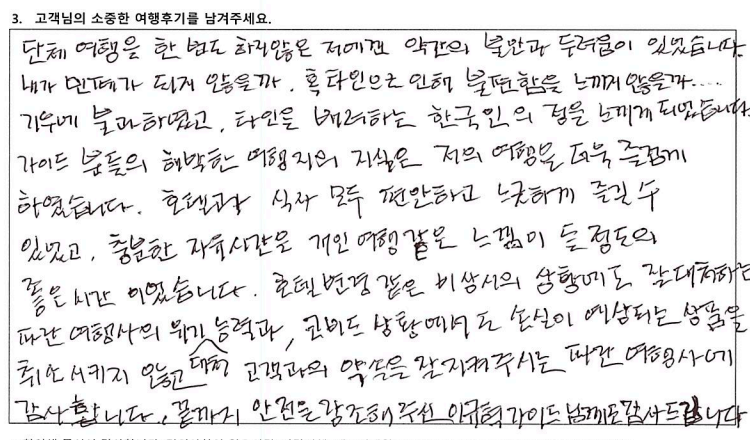 3. 고객님의 소중한 여행후기를 남겨주세요.
단체 여행을 한 번도 하지않은 저에겐 약간의 불안과 두려움이 있었습니다.
내가 민폐가 되지 않을까, 혹 타인으로 인해 불편함을 느끼지 않을까....
기우에 불과하였고, 타인을 배려하는 한국인의 정을 느끼게 되었습니다.
가이드 분들의 해박한 여행지의 지식은 저의 여행을 더욱 즐겁게
하였습니다. 호텔과 식사 모두 편안하고 느긋하게 즐길 수
있었고, 충분한 자유시간은 개인 여행 같은 느낌이 들 정도의
좋은 시간 이었습니다. 호텔변경 같은 비상시의 상황에도 잘대처하는
파란 여행사의 위기 대처 능력과, 코비드 상황에서도 손실이 예상되는 상품을
취소시키지 않고 고객과의 약속을 잘지켜주시는 파란 여행사에
감사합니다. 끝까지 안전을 강조해주신 이규혁가이드님께도 감사드립니다